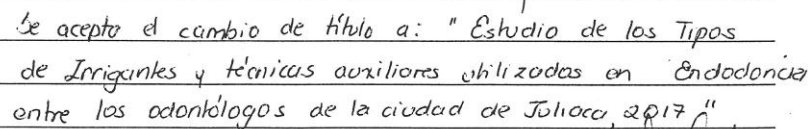 Se acepto el cambio de título a: "Estudio de los Tipos
de Irrigantes y técnicas auxiliares utilizadas en Endodoncia
entre los odontólogos de la ciudad de Juliaca, 2017".